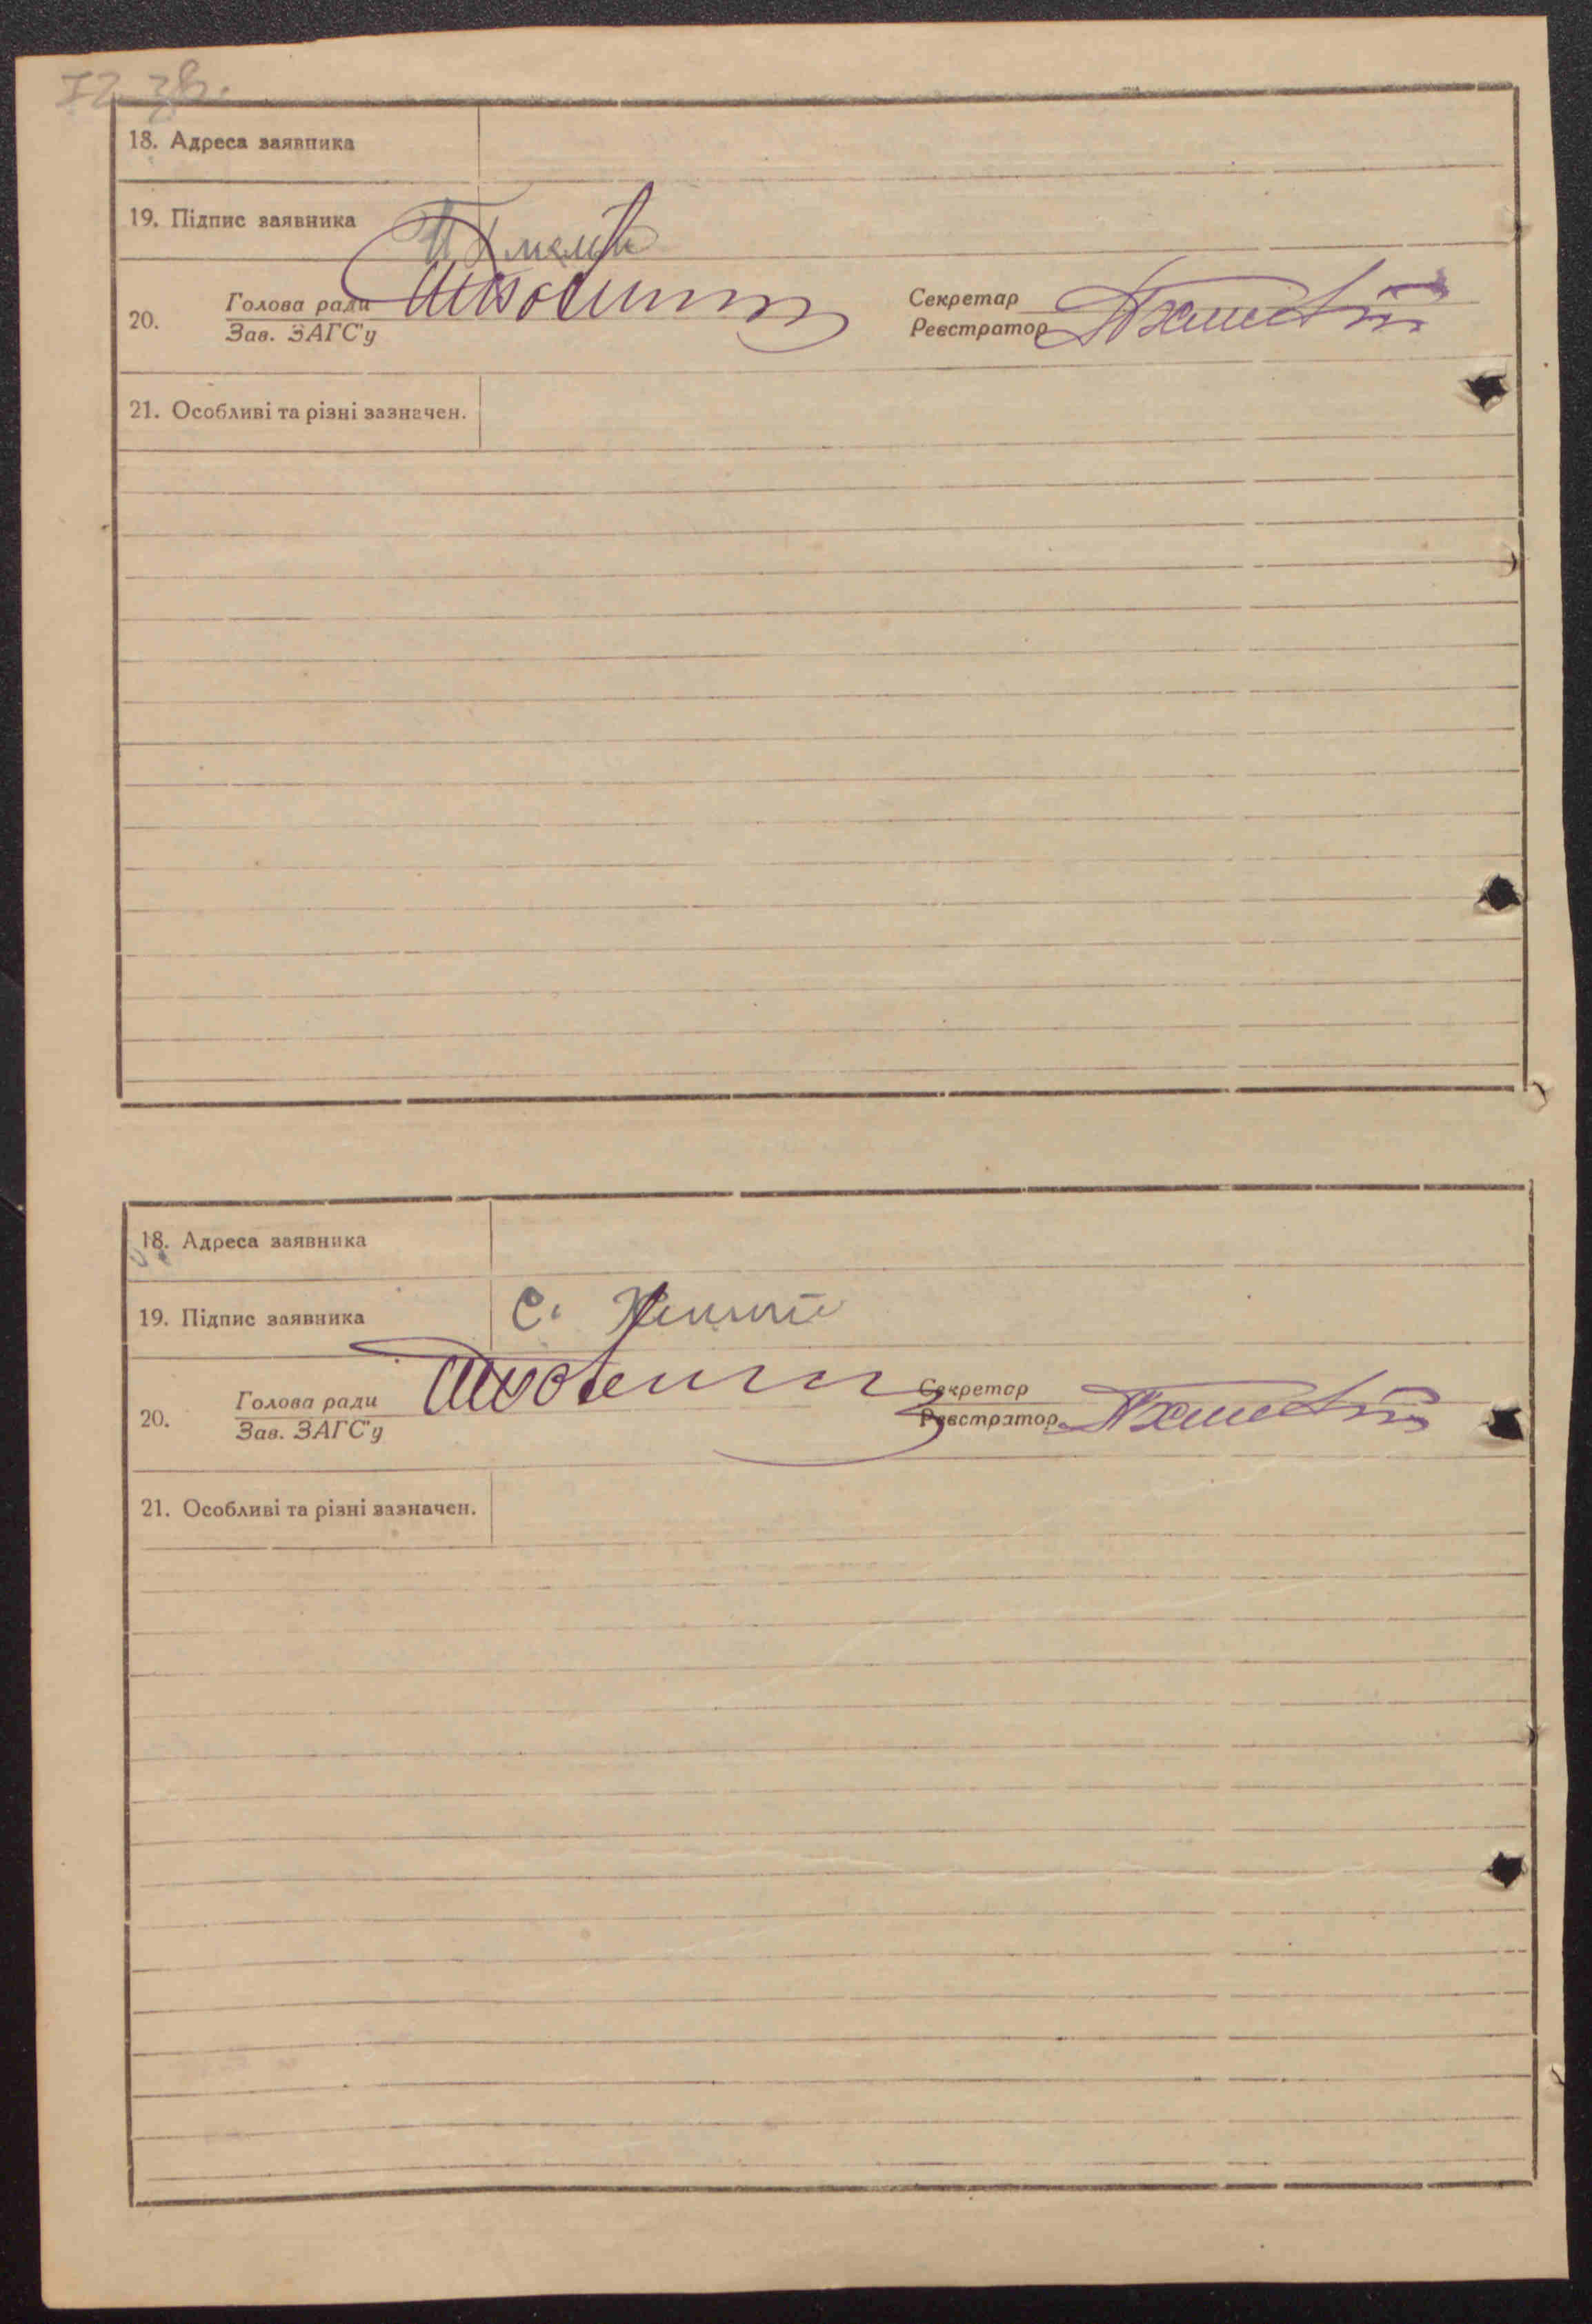 72 зв.
18. Адреса заявника
19. Підпис заявника
20. Голова ради Секретар
Зав. ЗАГС'у Реєстратор
21. Особливі та різні зазначен.
18. Адреса заявника
19. Підпис заявника С.
20. Голова ради Секретар
Зав. ЗАГС'у Реєстратор
21. Особливі та різні зазначен.